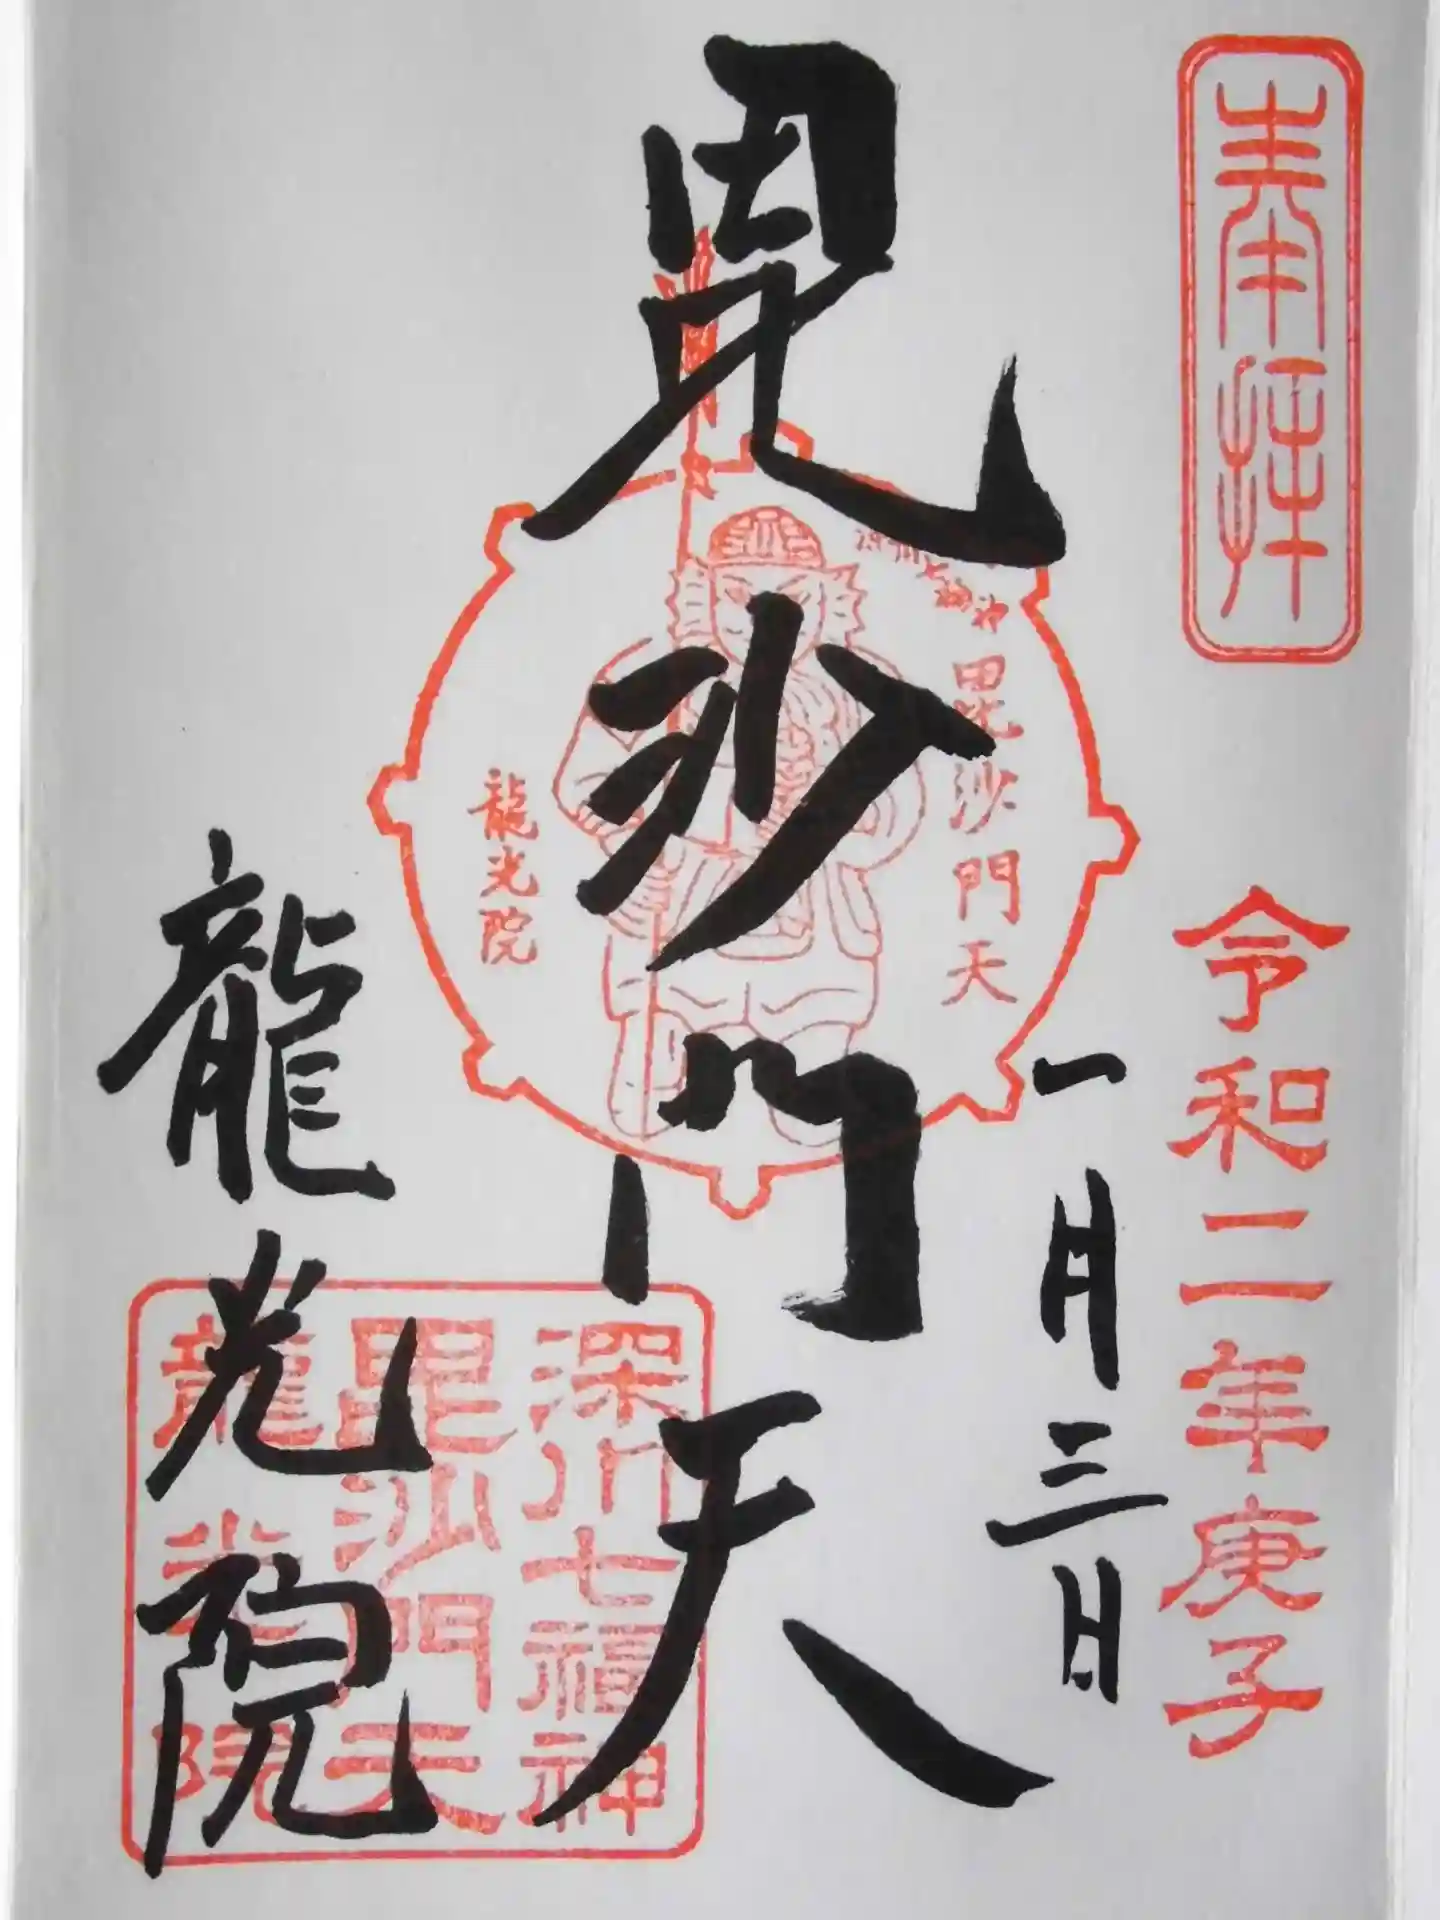 奉拝
令和二年庚子
一月三日
毘沙門天
深川七福神
毘沙門天
龍光院
龍光院
深川七福神
毘沙門天
龍光院